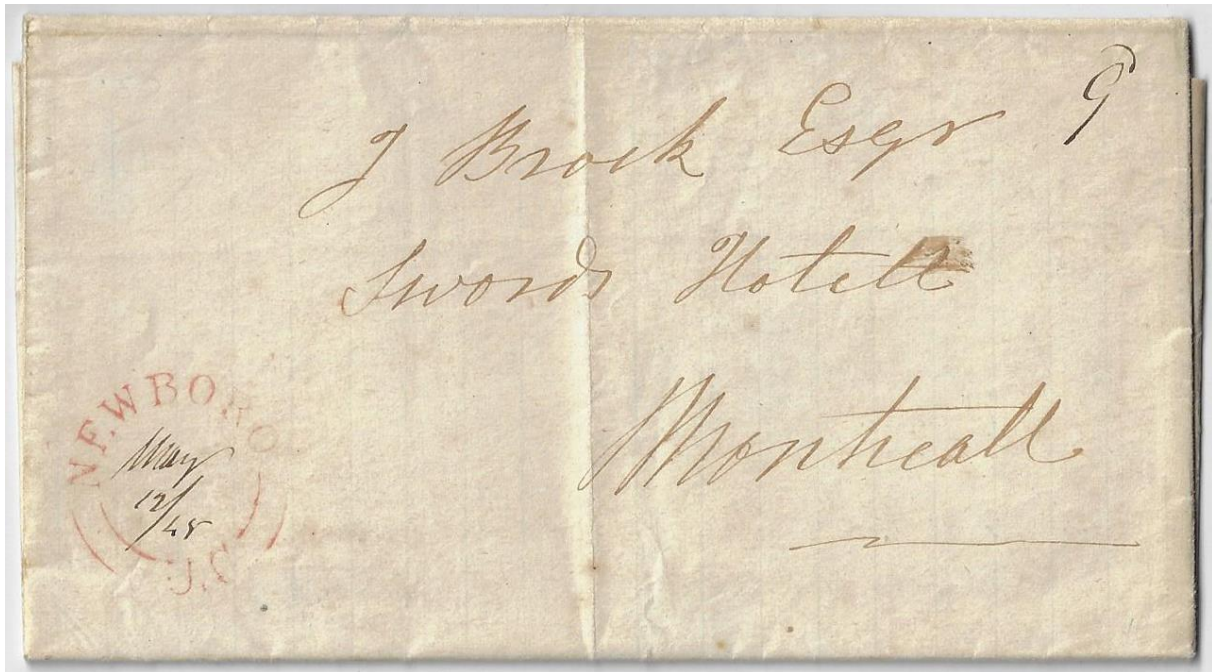 9
J Brock Esqr
Swords Hotell
Montreall
NEWBORO
May
12/48
U.C.